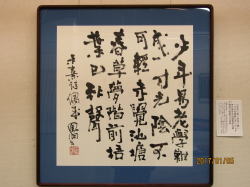 少年易老學難
成一寸光陰不
可輕未覺池塘
春草夢階前梧
葉已秋聲
朱熹詩偶成
2017/01/05